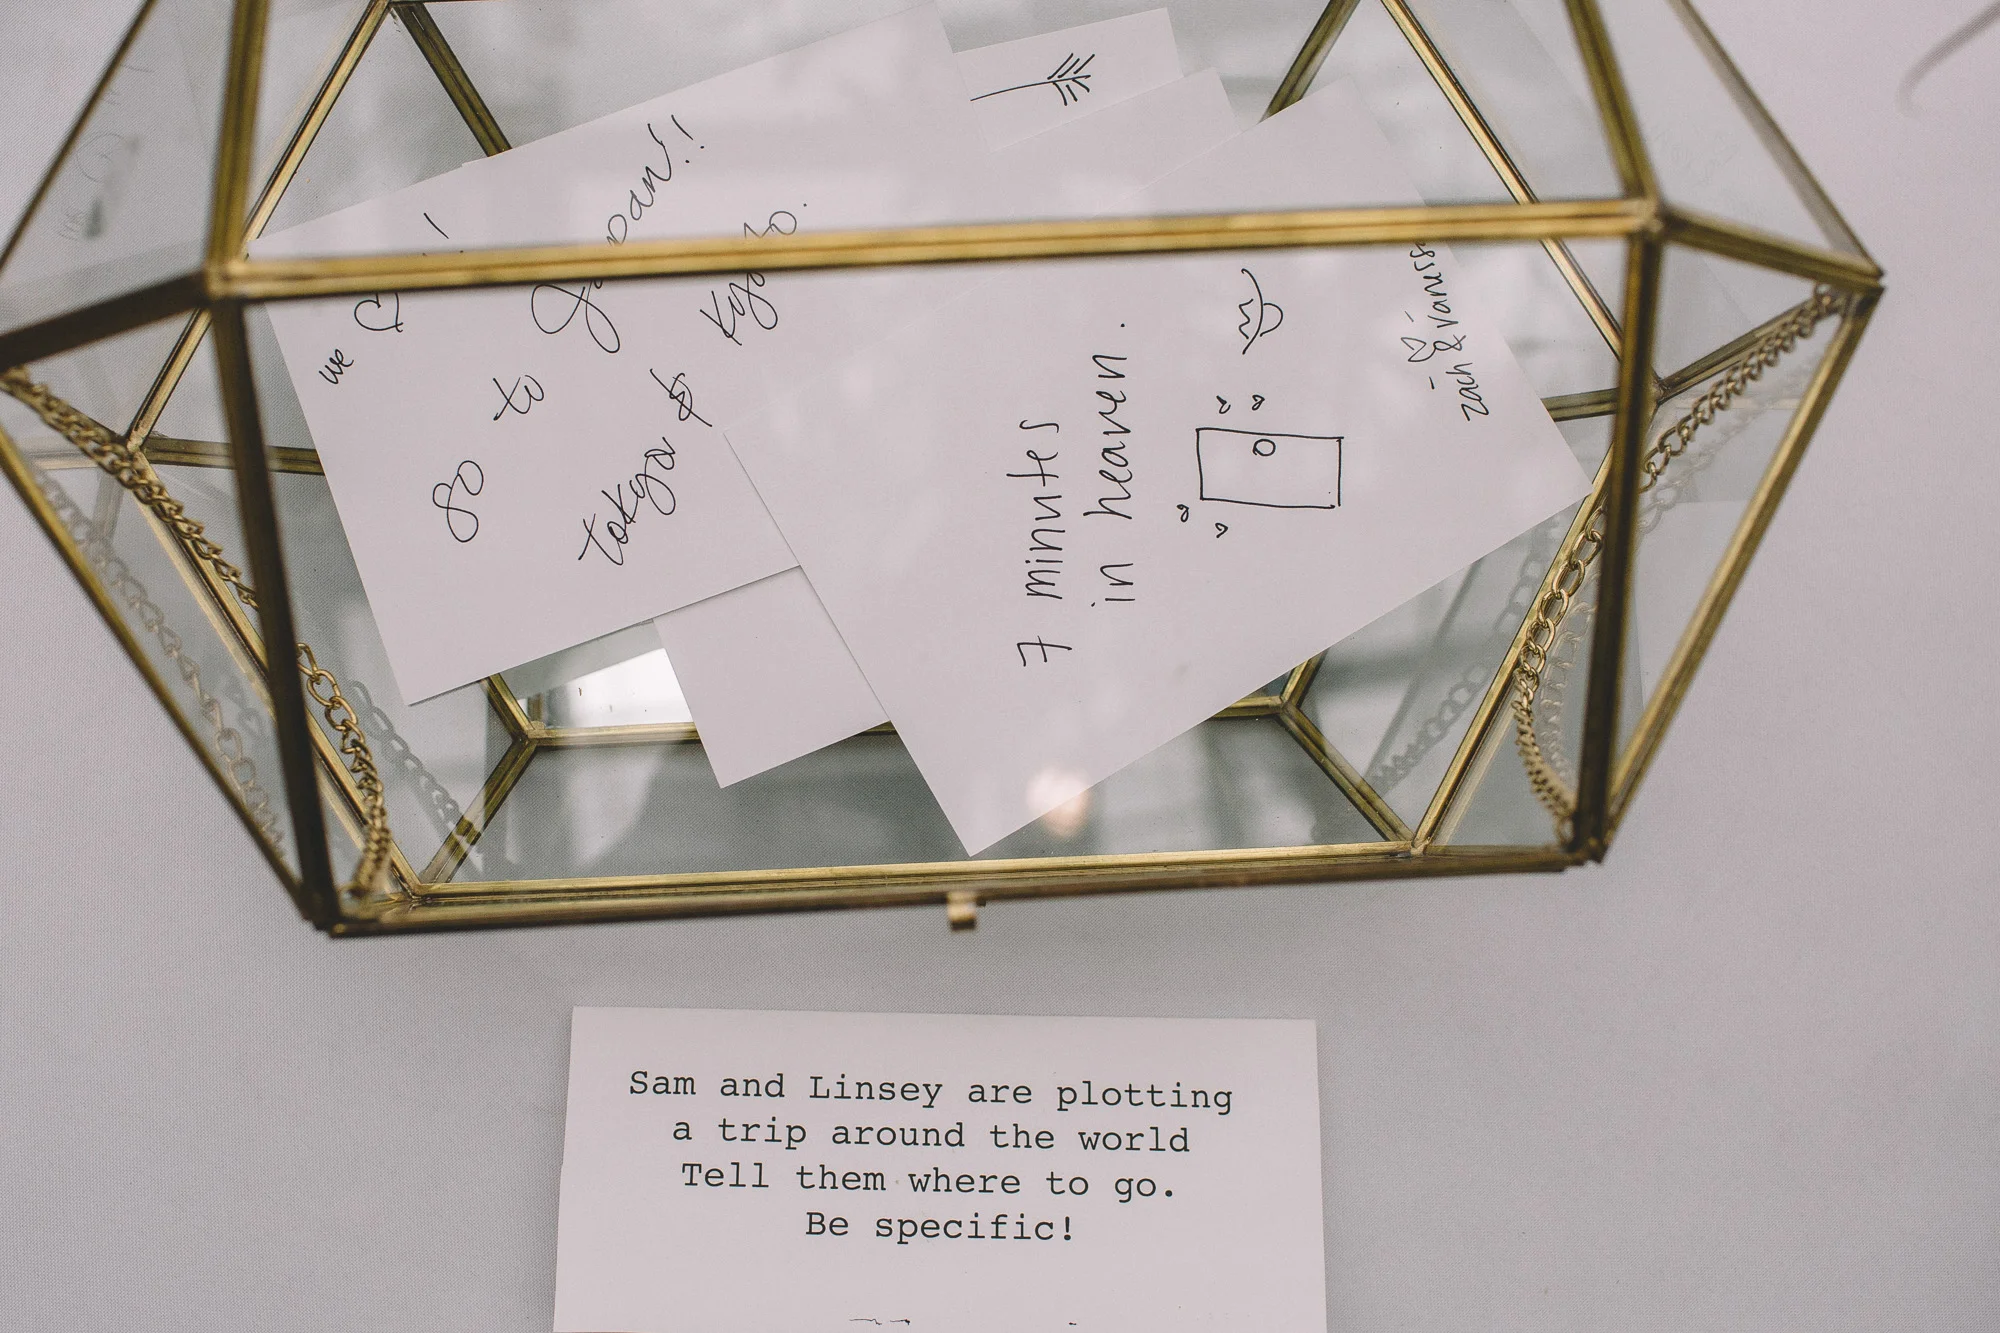 go to Japan!!
tokyo & Kyoto.
we ♡
7 minutes
in heaven.
♡
zach & Vanessa
Sam and Linsey are plotting
a trip around the world
Tell them where to go.
Be specific!